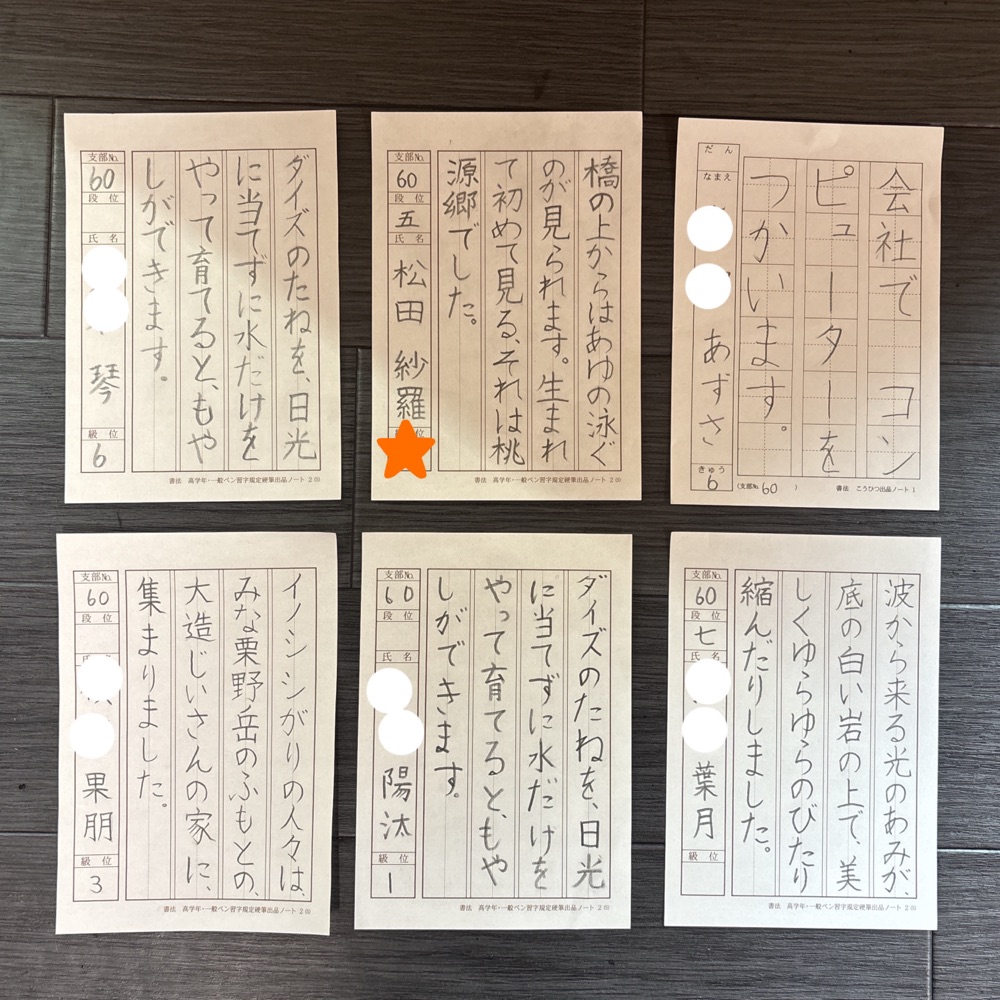 ダイズのたねを、日光
に当てずに水だけを
やって育てると、もや
しができます。
支部No.
60
段位
氏名
琴
級位
6
書法 高学年・一般ペン習字規定硬筆出品ノート 2
橋の上からはあゆの泳ぐ
のが見られます。生まれ
て初めて見る、それは桃
源郷でした。
支部No.
60
段位
五
氏名
松田 紗羅
書法 高学年・一般ペン習字規定硬筆出品ノート 2
会社で コン
ピューターを
つかいます。
だん
なまえ
あずさ
きゅう
6
(支部No. 60 )
書法 こうひつ出品ノート 1
イノシシがりの人々は、
みな栗野岳のふもとの、
大造じいさんの家に、
集まりました。
支部No.
60
段位
果朋
級位
3
書法 高学年・一般ペン習字規定硬筆出品ノート 2
ダイズのたねを、日光
に当てずに水だけを
やって育てると、もや
しができます。
支部No.
60
段位
氏名
陽汰
級位
1
書法 高学年・一般ペン習字規定硬筆出品ノート 2
波から来る光のあみが、
底の白い岩の上で、美
しくゆらゆらのびたり
縮んだりしました。
支部No.
60
段位
七
氏名
葉月
級位
書法 高学年・一般ペン習字規定硬筆出品ノート 2